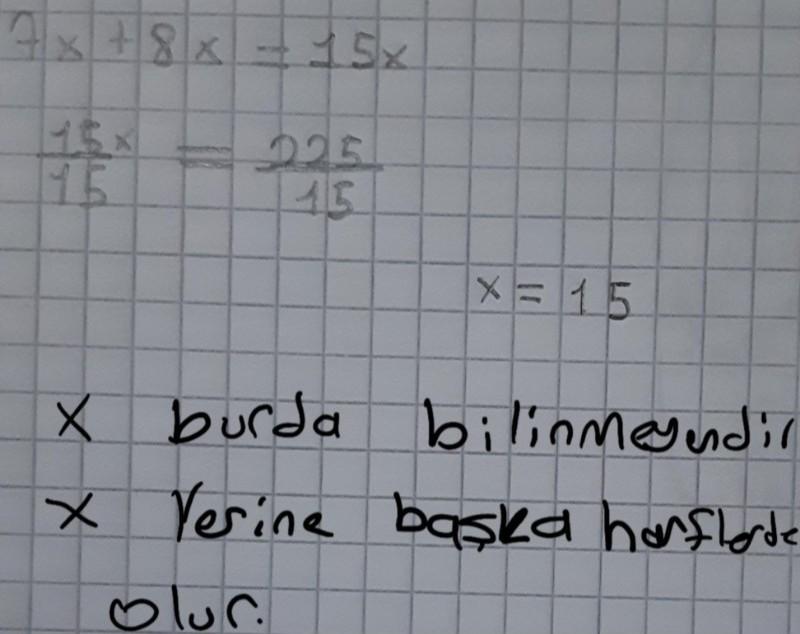 7x + 8x = 15x
15x/15 = 225/15
x = 15
X burda bilinmeyendir
X Yerine başka harflerde
olur.